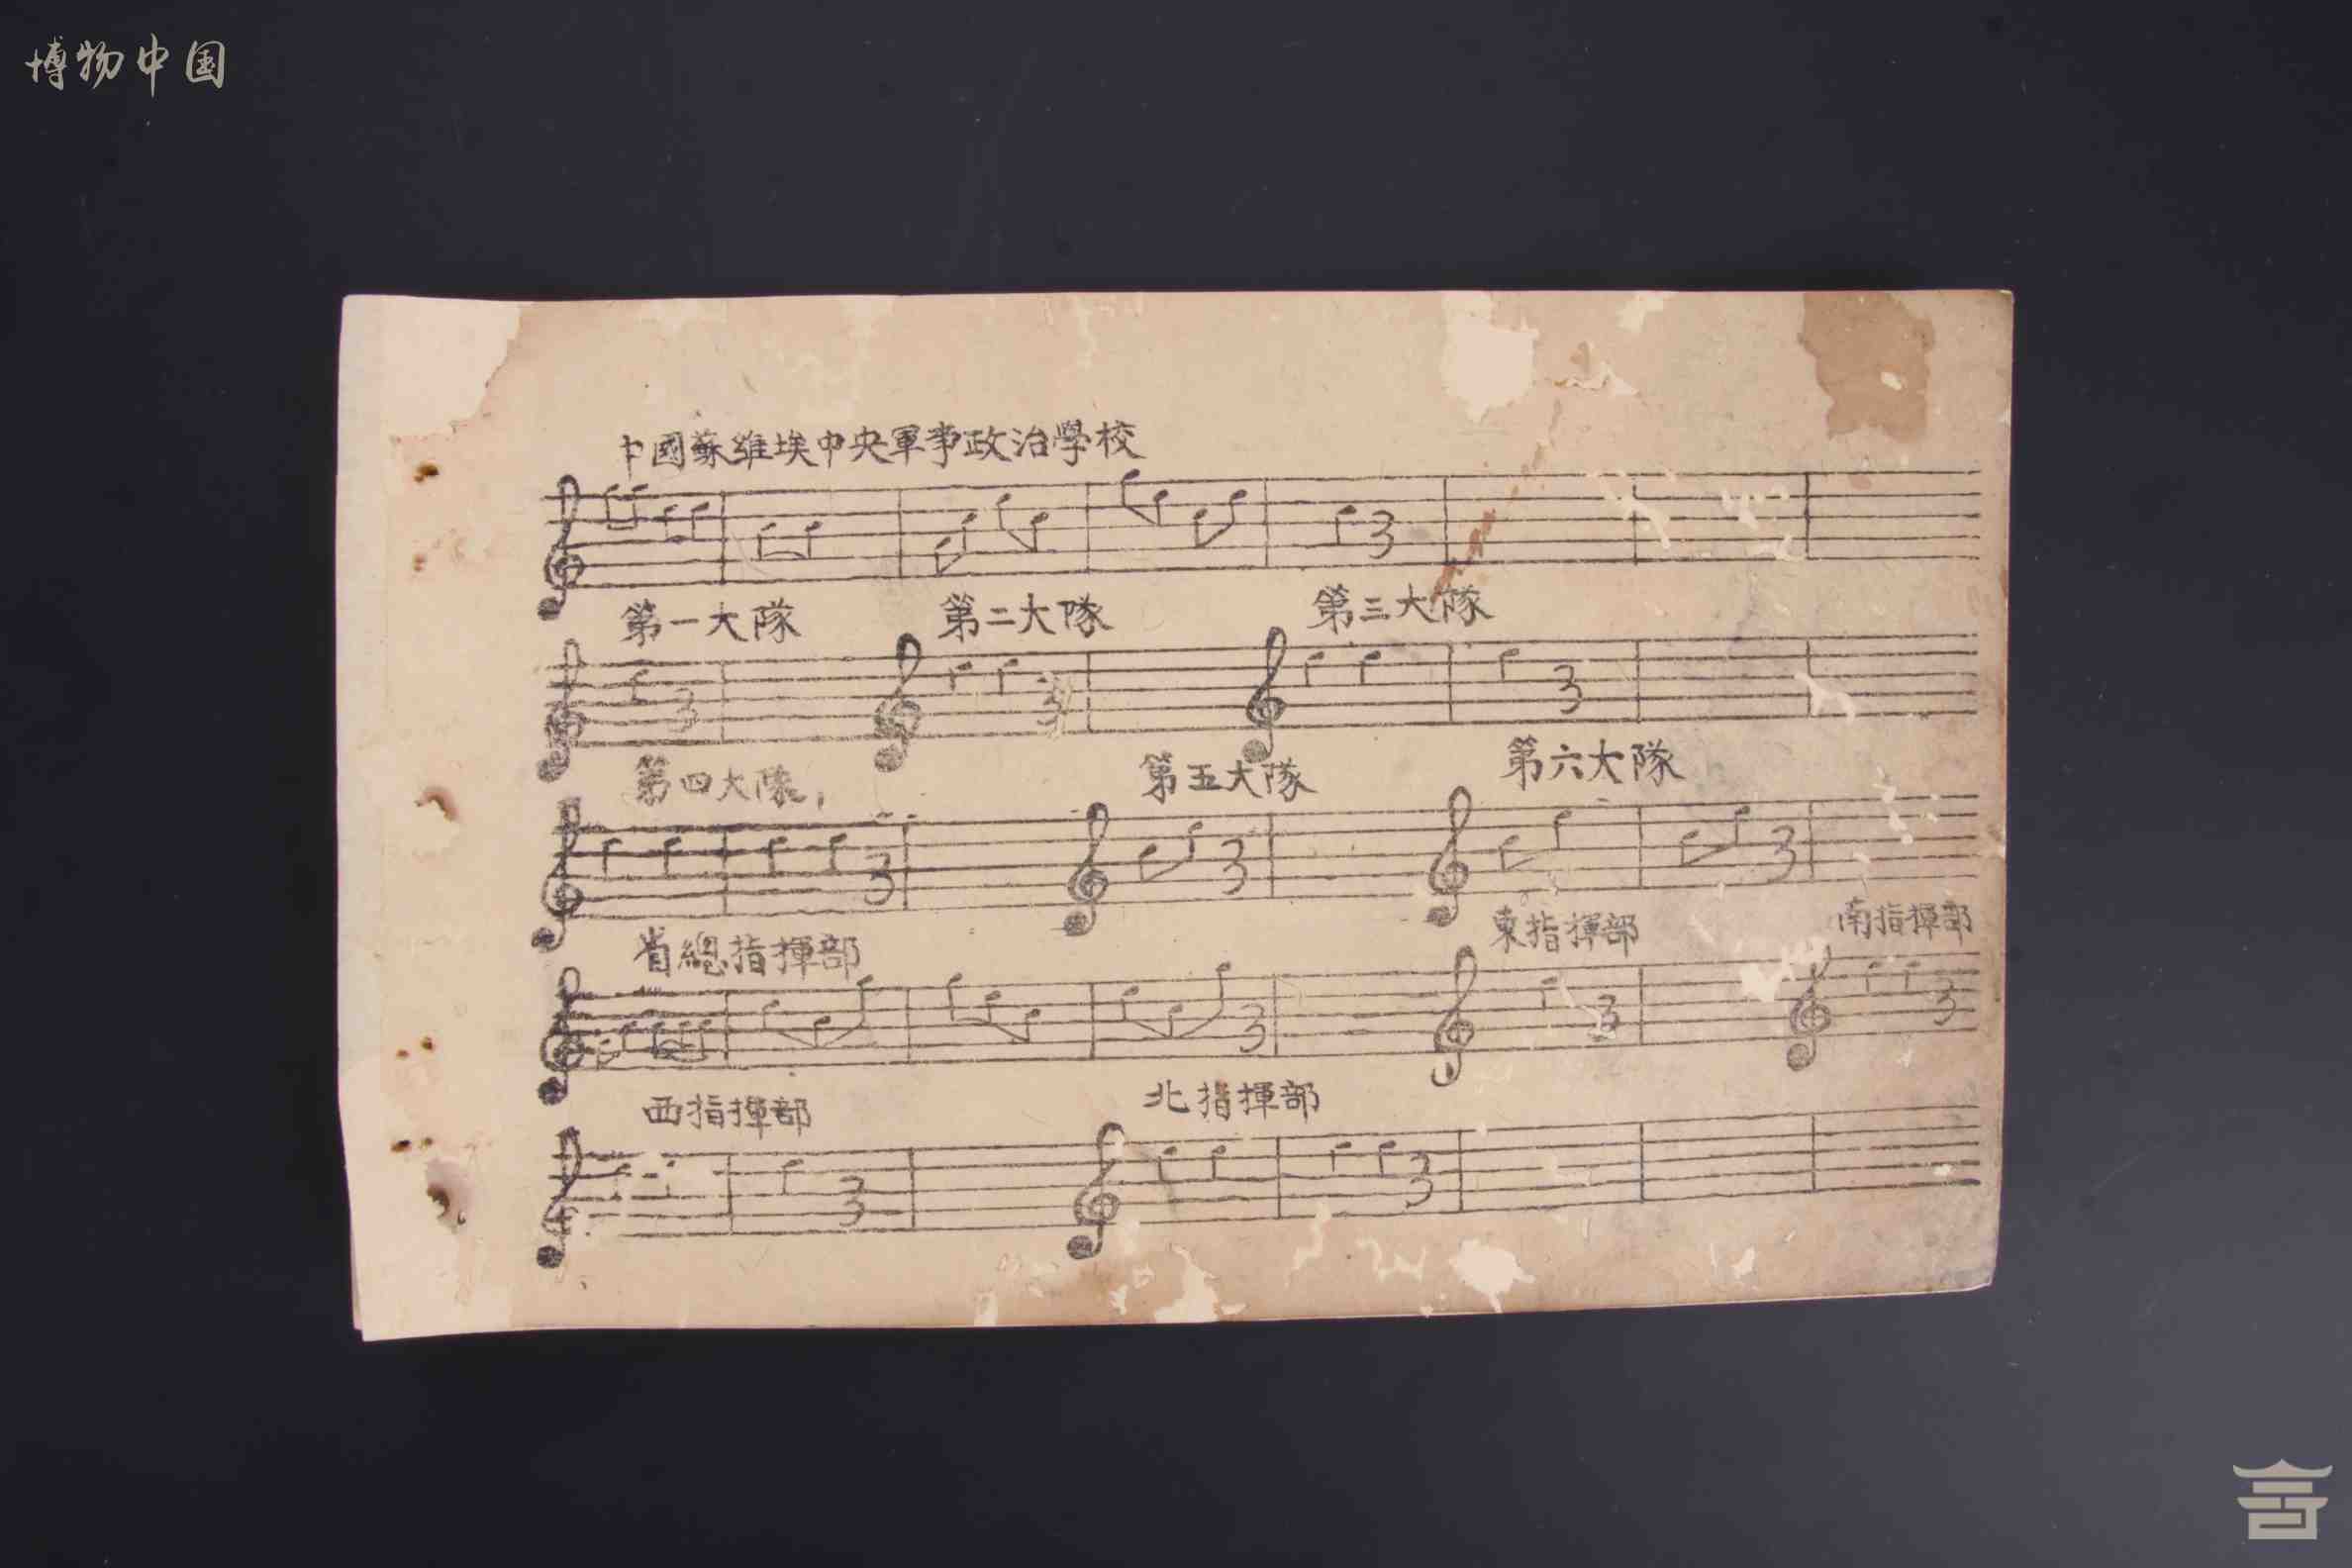 博物中国
中國蘇維埃中央軍事政治學校
3
第一大隊 第二大隊 第三大隊
3 3 3
第四大隊, 第五大隊 第六大隊
3 3 3
省總指揮部 東指揮部 南指揮部
3 3 3
西指揮部 北指揮部
3 3